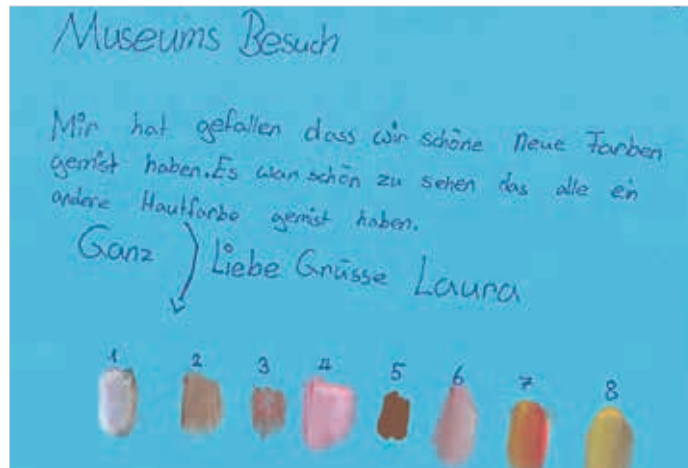 Museums Besuch
Mir hat gefallen dass wir schöne neue Farben
gemist haben. Es war schön zu sehen das alle ein
andere Hautfarbe gemist haben.
Ganz Liebe Grüsse Laura
1 2 3 4 5 6 7 8